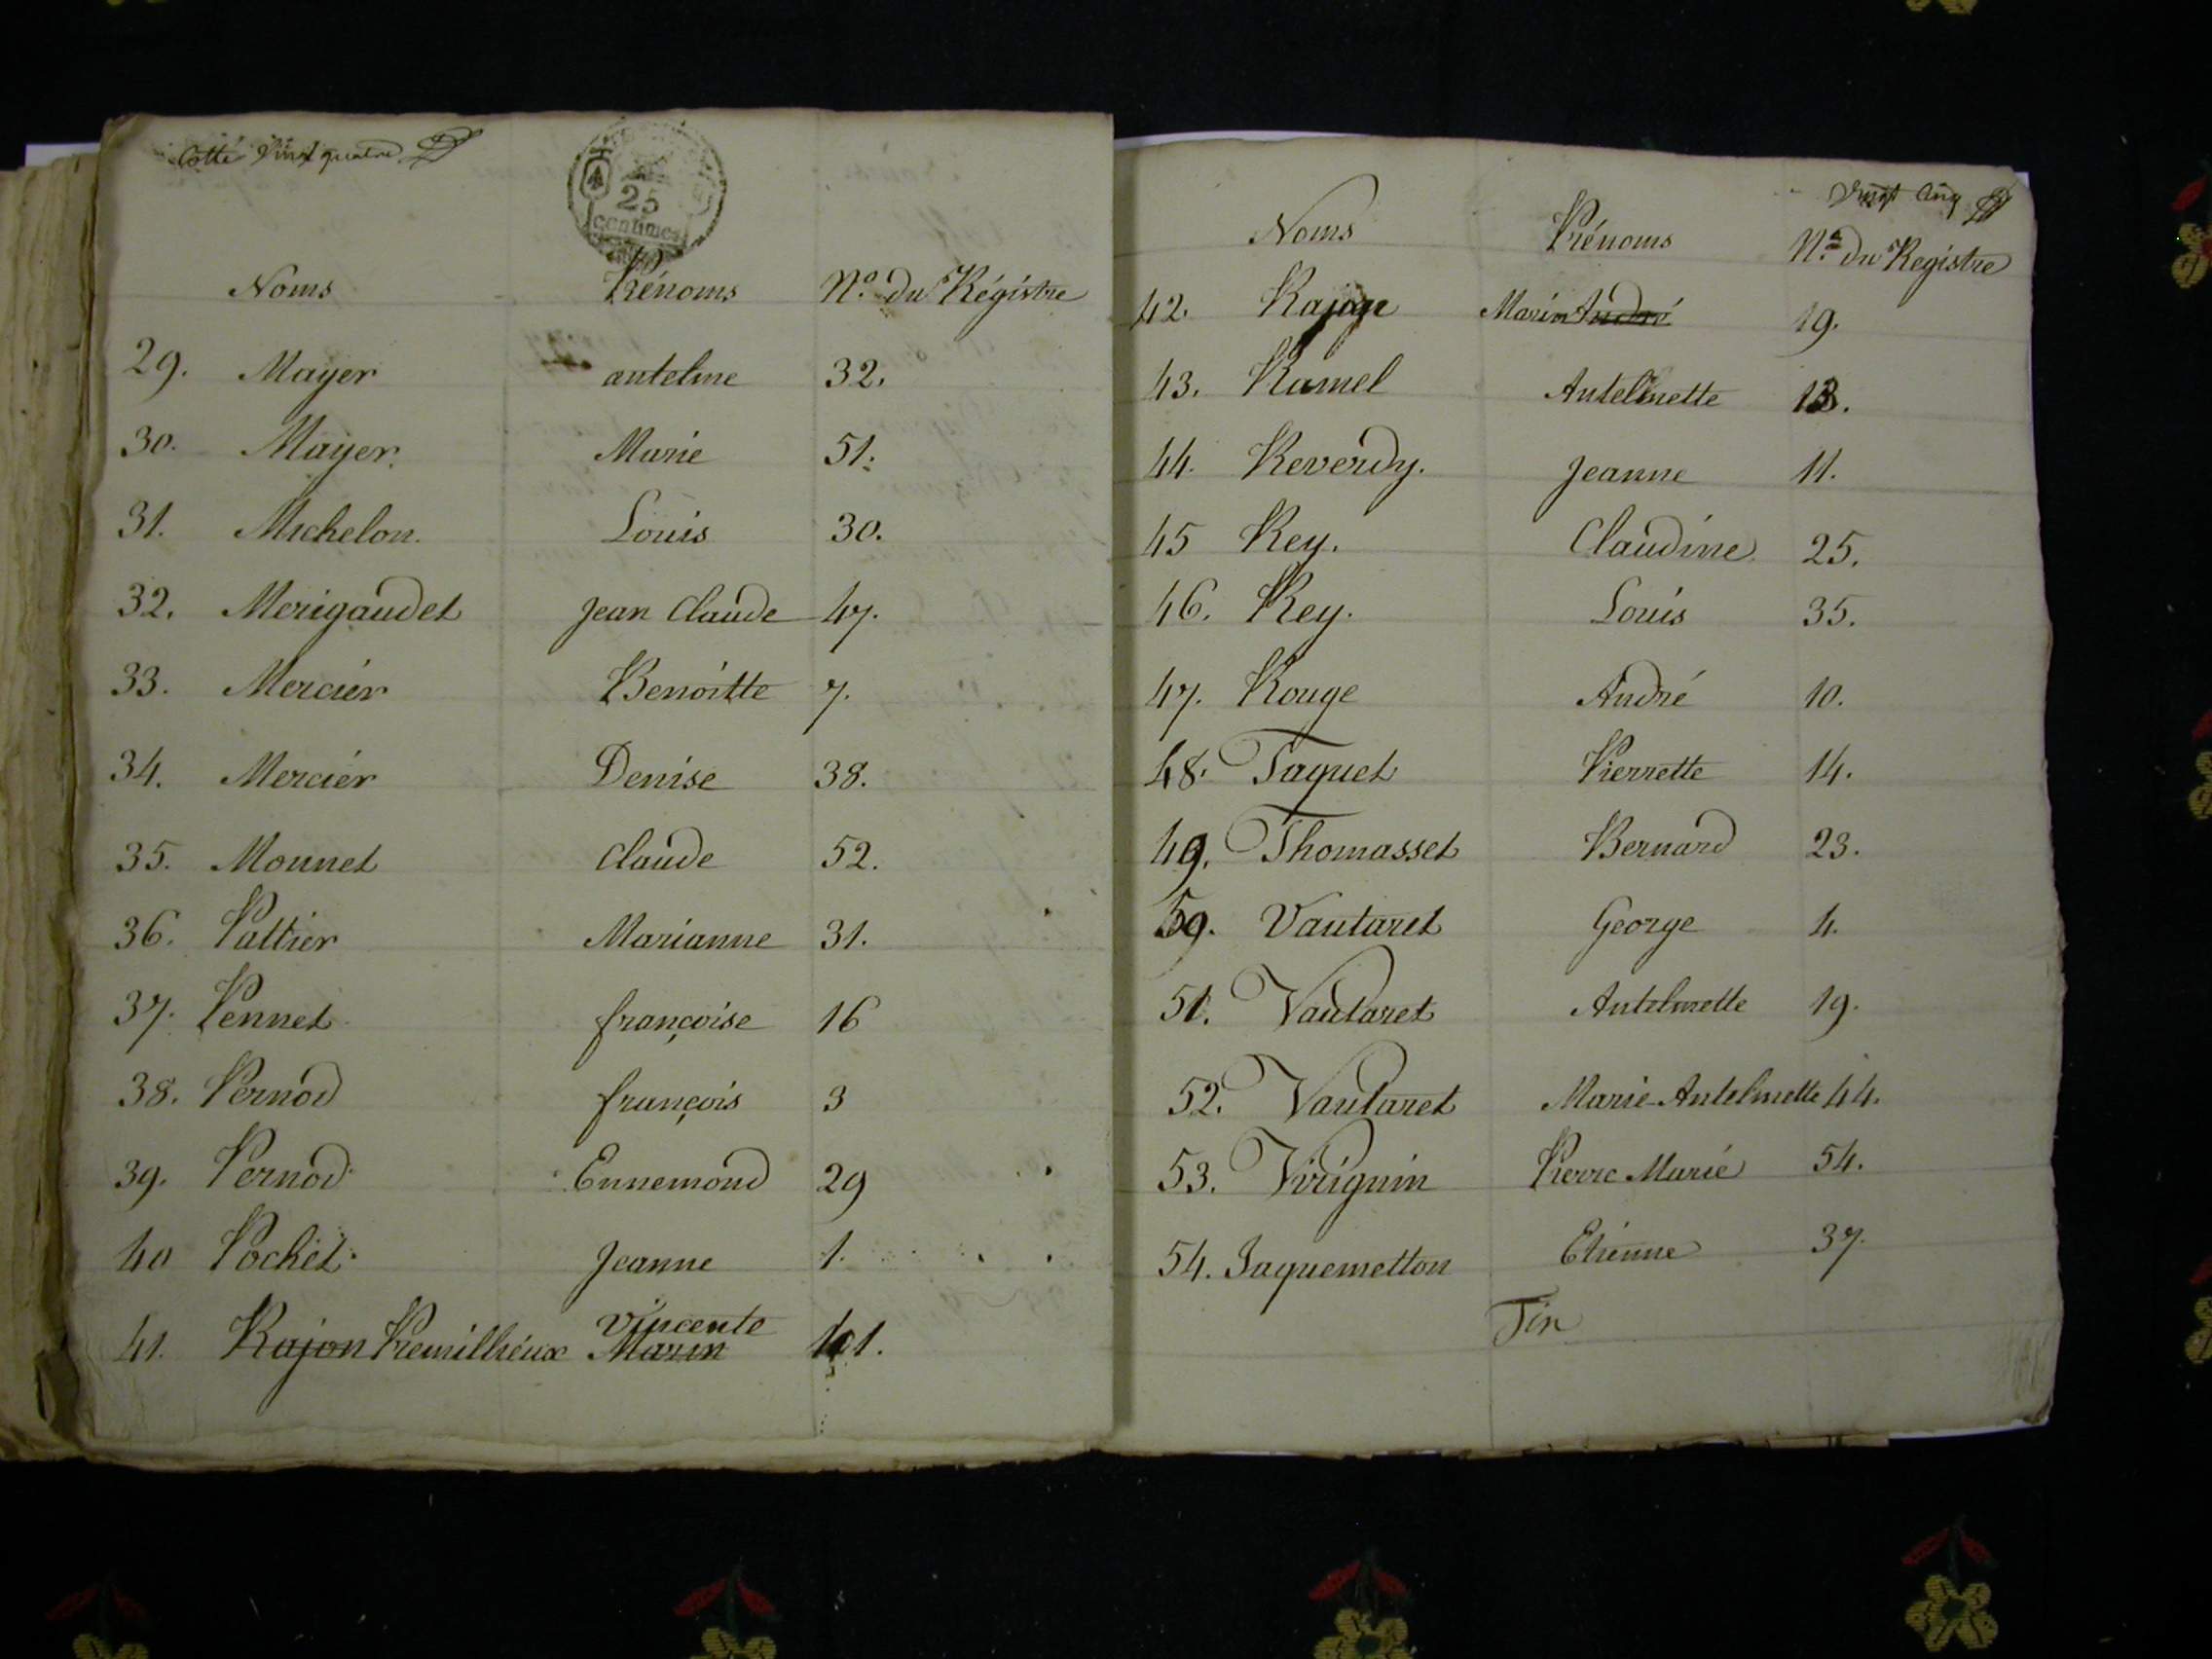 Cotté Vingt quatre
25
centimes
Noms Prénoms N.º du Régistre
29. Mayer antelme 32.
30. Mayer. Marie 51.
31. Michelon. Louis 30.
32. Merigaudet Jean Claude 47.
33. Mercier Benoitte 7.
34. Mercier Denise 38.
35. Monnet Claude 52.
36. Pattier Marianne 31.
37. Pennet françoise 16
38. Pernod françois 3
39. Pernod Ennemond 29
40 Pochet. Jeanne 1.
Vincente
41. Rajon Premillieux Marin
Vingt Cinq
Noms Prénoms N.º du Registre
42. Rajon Marin André 19.
43. Ramel Antelmette
44. Reverdy. Jeanne 11.
45 Rey. Claudine 25.
46. Rey. Louis 35.
47. Rouge André 10.
48. Taquet Pierrette 14.
49. Thomasset Bernard 23.
Vautaret George 4.
51. Vautaret Antelmette 19.
52. Vautaret Marie Antelmette 44.
53. Virignin Pierre Marie 54.
54. Jaquemetton Etienne 37.
Fin